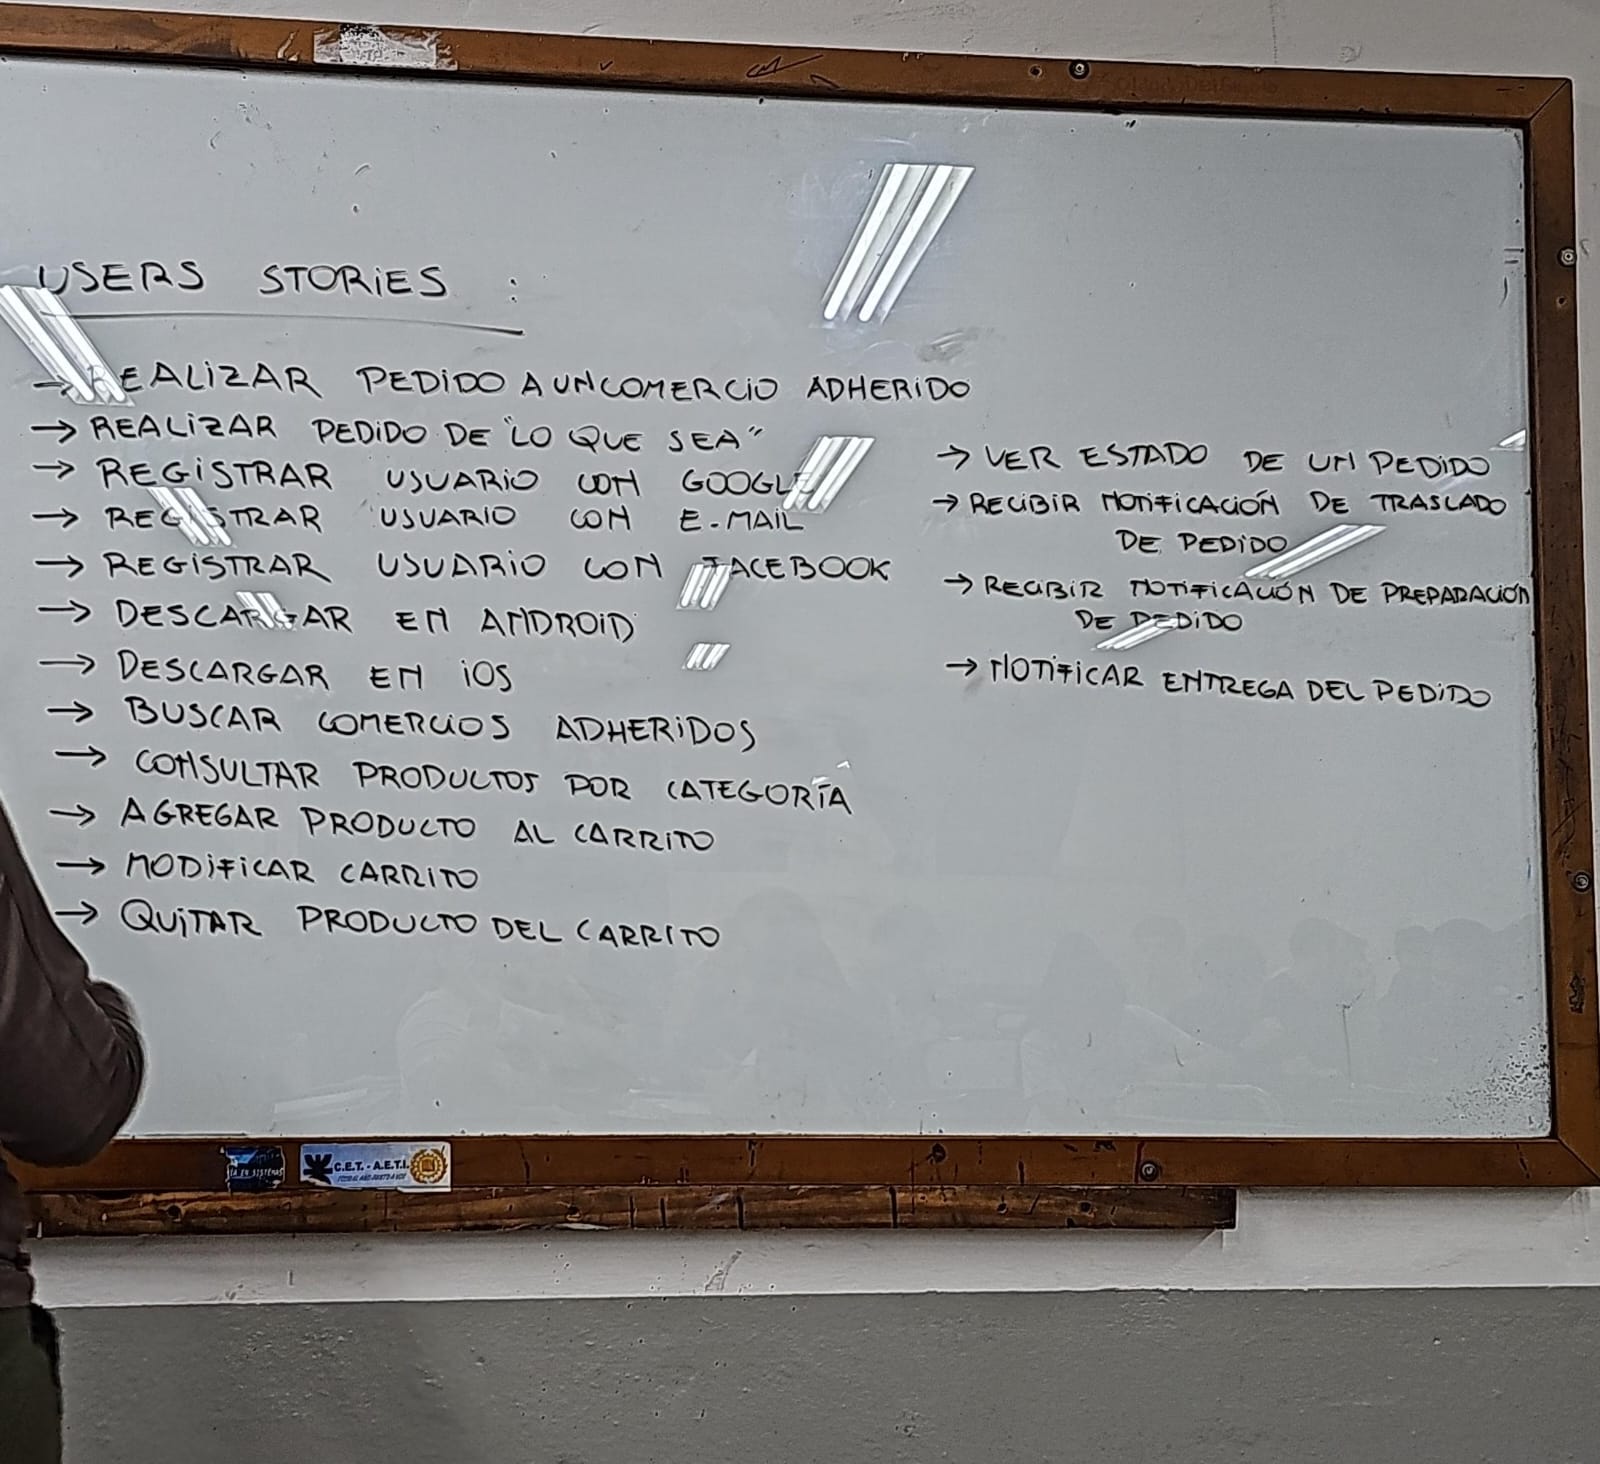 USERS STORIES :
→ REALIZAR PEDIDO A UN COMERCIO ADHERIDO
→ REALIZAR PEDIDO DE "LO QUE SEA"
→ REGISTRAR USUARIO CON GOOGLE
→ REGISTRAR USUARIO CON E-MAIL
→ REGISTRAR USUARIO CON FACEBOOK
→ DESCARGAR EN ANDROID
→ DESCARGAR EN iOS
→ BUSCAR COMERCIOS ADHERIDOS
→ CONSULTAR PRODUCTOS POR CATEGORÍA
→ AGREGAR PRODUCTO AL CARRITO
→ MODIFICAR CARRITO
→ QUITAR PRODUCTO DEL CARRITO
→ VER ESTADO DE UN PEDIDO
→ RECIBIR NOTIFICACIÓN DE TRASLADO
DE PEDIDO
→ RECIBIR NOTIFICACIÓN DE PREPARACIÓN
DE PEDIDO
→ NOTIFICAR ENTREGA DEL PEDIDO
C.E.T. - A.E.T.I.